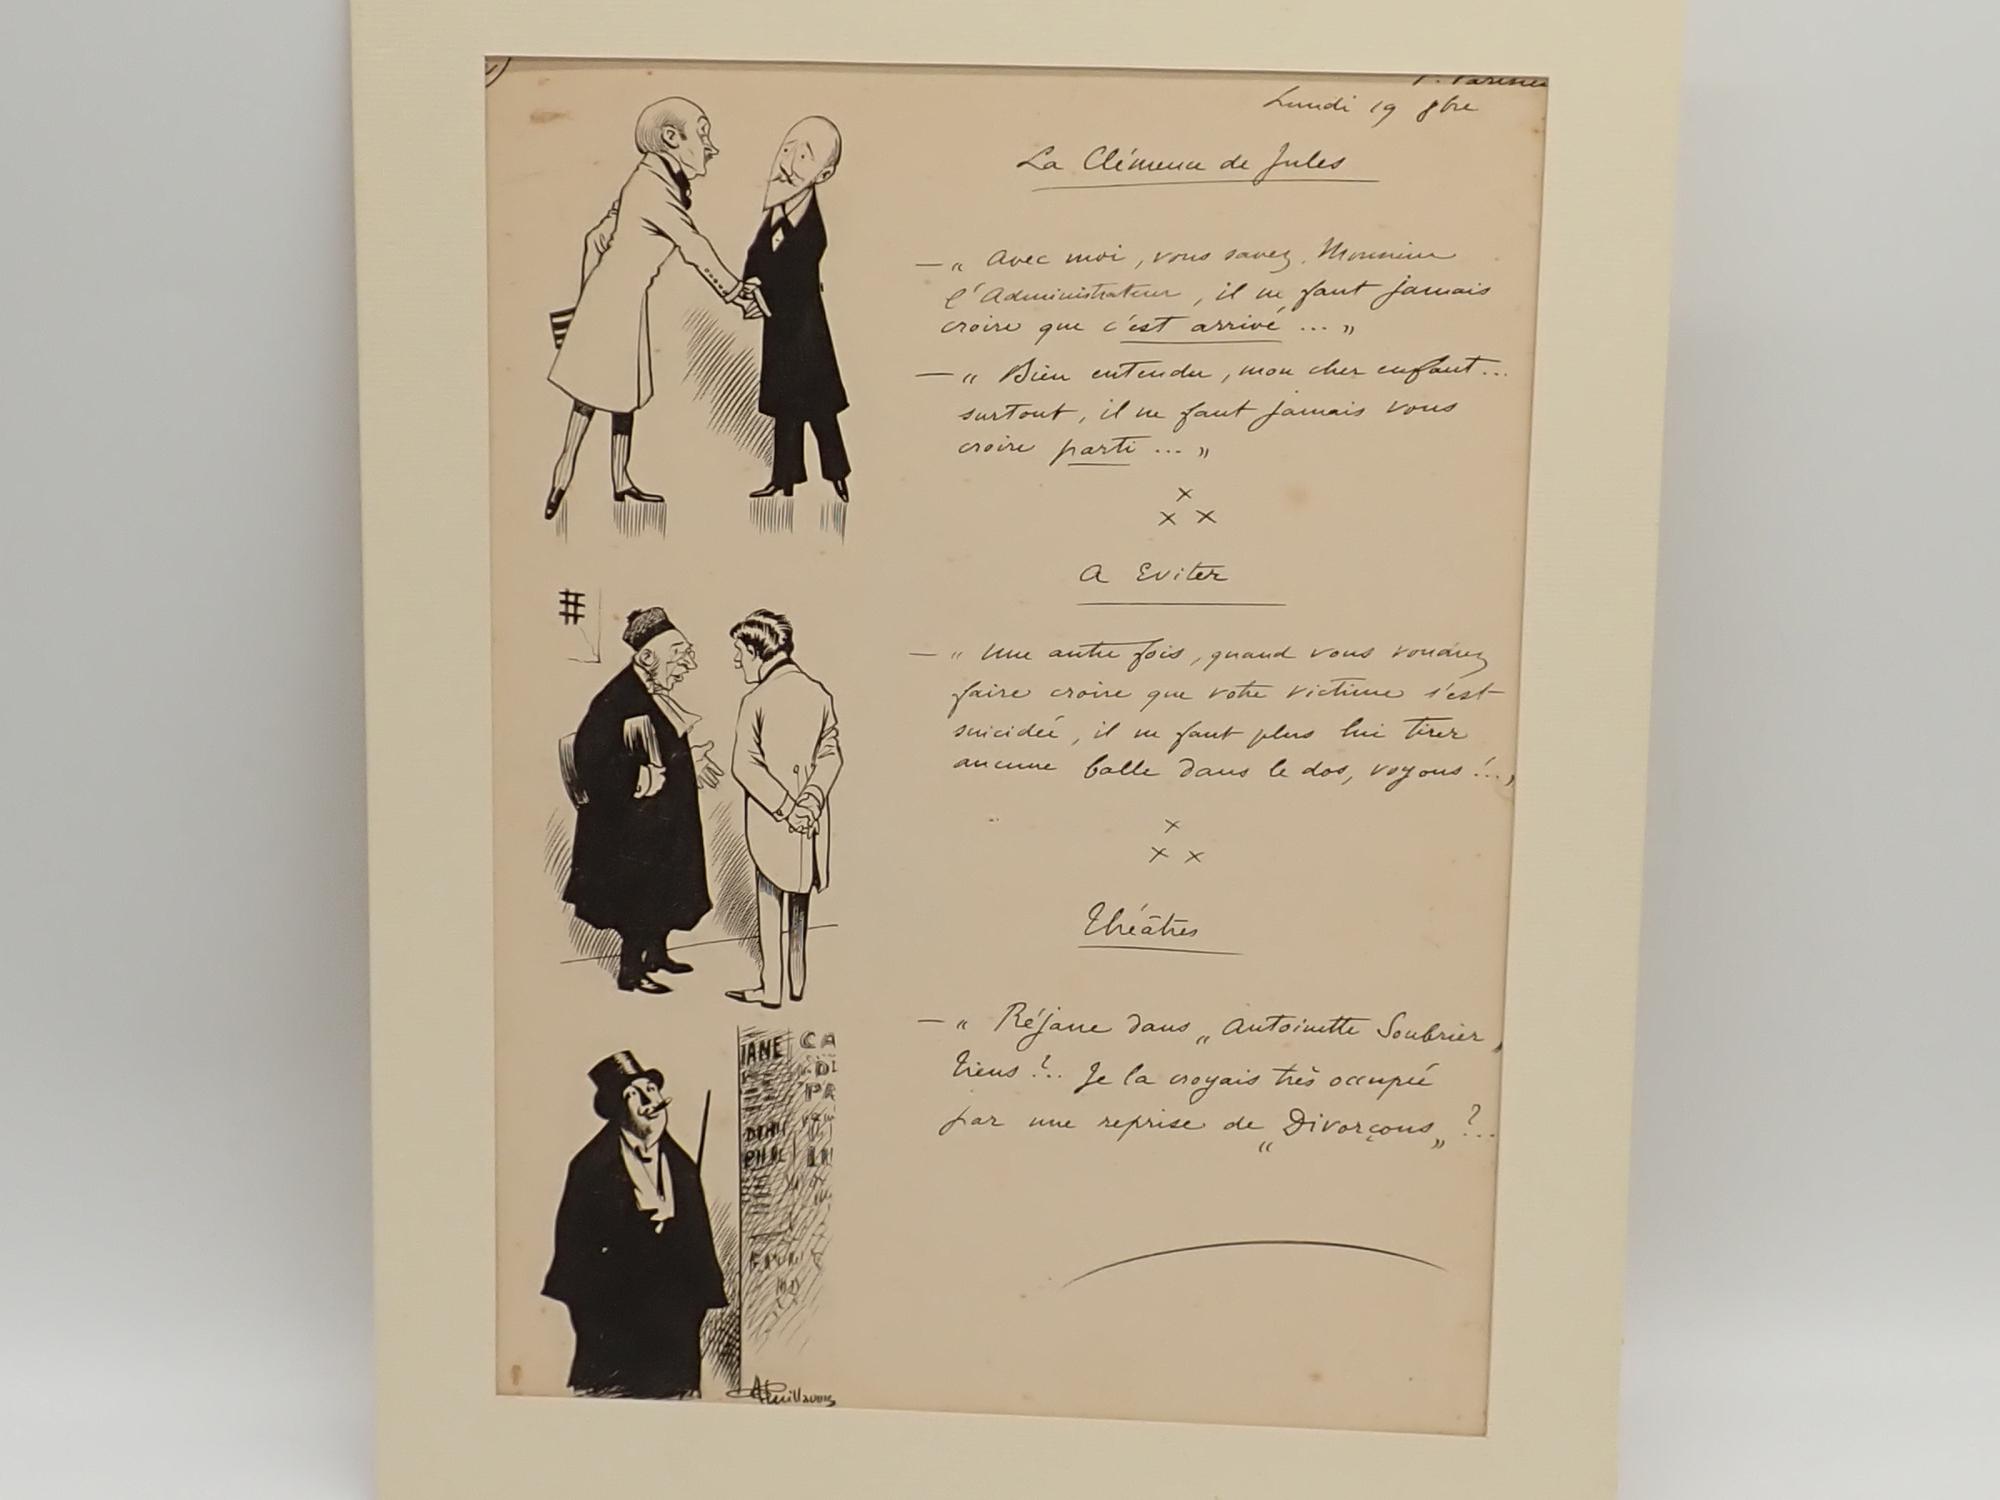 Lundi 19 8bre
La Clémence de Jules
— „ Avec moi, vous savez, Monsieur
l'Administrateur, il ne faut jamais
croire que c'est arrivé ... „
— „ Bien entendu, mon cher enfant...
surtout, il ne faut jamais vous
croire parti ... „
x
x x
A Eviter
— „ Une autre fois, quand vous voudrez
faire croire que votre victime s'est
suicidée, il ne faut plus lui tirer
aucune balle dans le dos, voyons !.. „
x
x x
Théâtres
— „ Réjane dans „ Antoinette Sabrier „
tiens ?.. Je la croyais très occupée
par une reprise de „ Divorçons „ ?..
JANE CA
DI
PA
AGuillaume